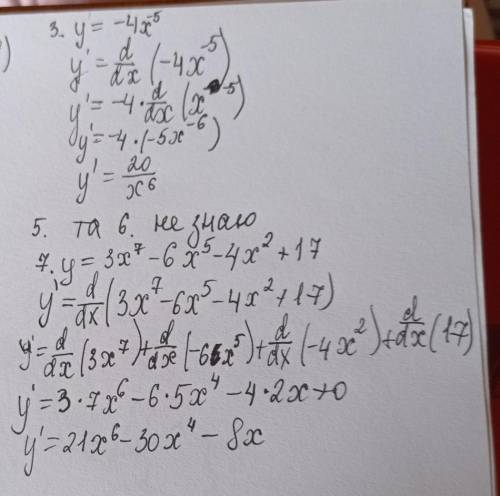 3. y = -4x⁻⁵
)
y' = d/dx (-4x⁻⁵)
y' = -4 · d/dx (x⁻⁵)
y' = -4 · (-5x⁻⁶)
y' = 20/x⁶
5. та 6. не знаю
7. y = 3x⁷ - 6x⁵ - 4x² + 17
y' = d/dx (3x⁷ - 6x⁵ - 4x² + 17)
y' = d/dx (3x⁷) + d/dx (-6x⁵) + d/dx (-4x²) + d/dx (17)
y' = 3 · 7x⁶ - 6 · 5x⁴ - 4 · 2x + 0
y' = 21x⁶ - 30x⁴ - 8x